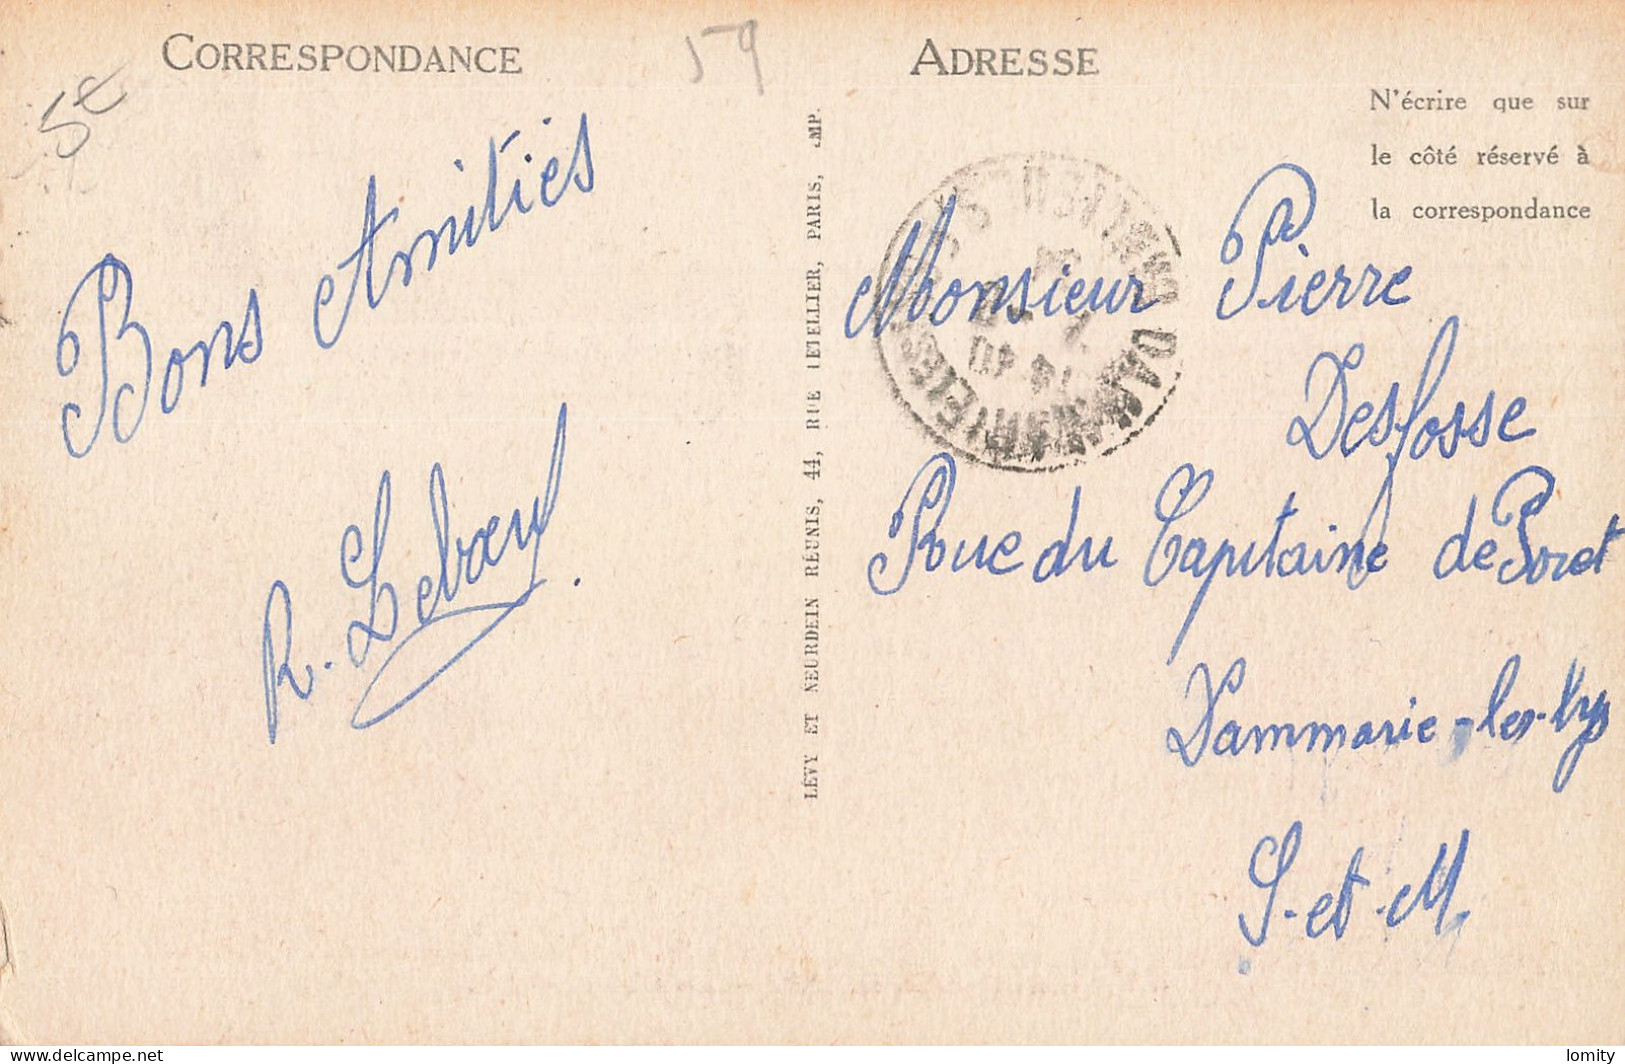 CORRESPONDANCE
59
5€
Bons Amitiés
R. Leboeuf.
LÉVY ET NEURDEIN RÉUNIS, 44, RUE LETELLIER, PARIS, IMP.
ADRESSE
N'écrire que sur
le côté réservé à
la correspondance
Monsieur Pierre
Desfosse
Rue du Capitaine de Poret
Dammarie-les-Lys
S.-et-M.
delcampe.net
lomity